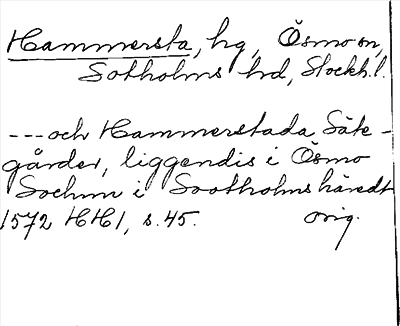 Hammersta, hg, Ösmo sn,
Sotholms hd, Stockh.l.
--- och Hammerstada Säte-
gårder, liggendis i Ösmo
Sochnn i Sootholms häredt
1572 HH 1, s. 45. orig.